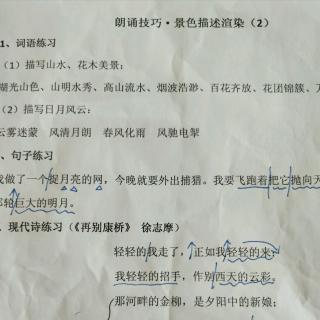 朗诵技巧·景色描述渲染（2）
1、词语练习
（1）描写山水、花木美景：
湖光山色、山明水秀、高山流水、烟波浩渺、百花齐放、花团锦簇、万
（2）描写日月风云：
云雾迷蒙 风清月朗 春风化雨 风驰电掣
、句子练习
我做了一个捉月亮的网，今晚就要外出捕猎。我要飞跑着把它抛向天
那轮巨大的明月。
、现代诗练习（《再别康桥》 徐志摩）
轻轻的我走了，正如我轻轻的来；
我轻轻的招手，作别西天的云彩。
那河畔的金柳，是夕阳中的新娘；